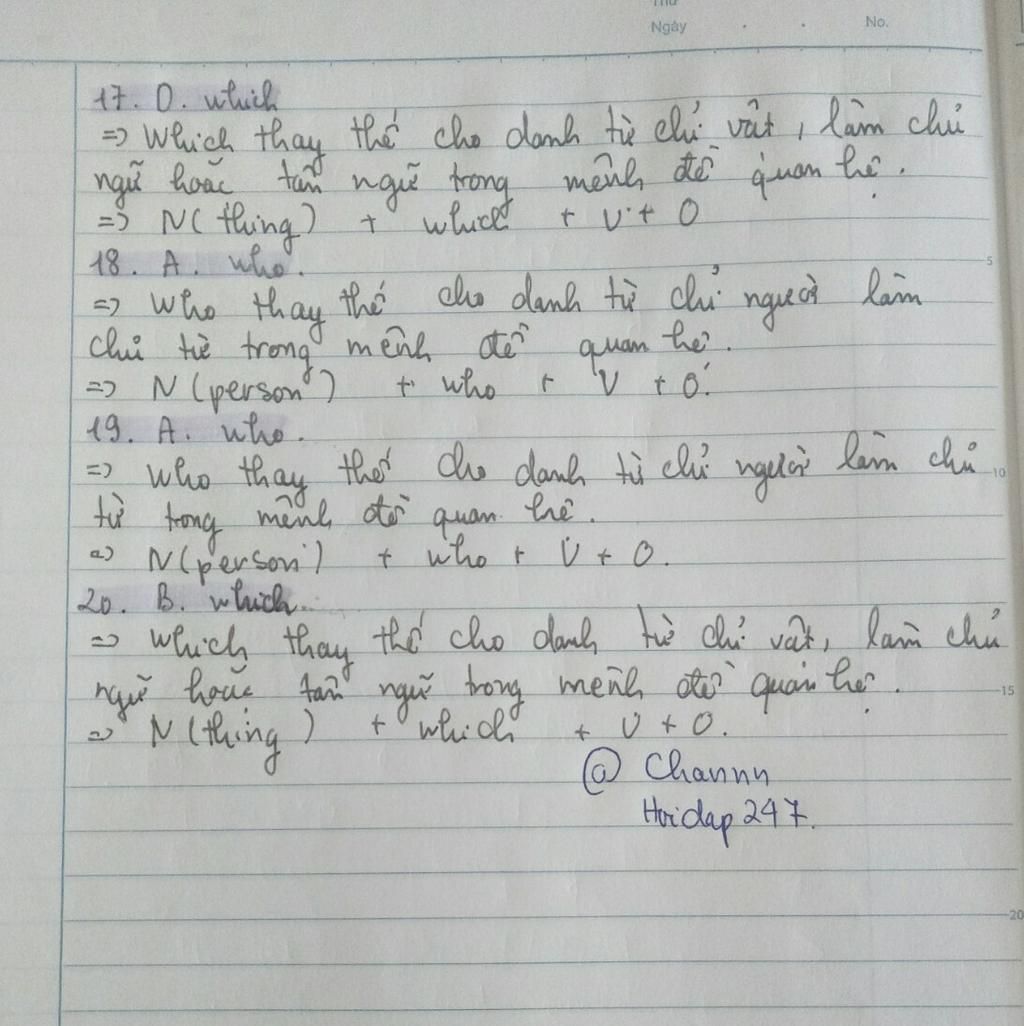 Thứ
Ngày . . No.
17. D. which
=) Which thay thế cho danh từ chỉ vật, làm chủ
ngữ hoặc tân ngữ trong mệnh đề quan hệ.
=) N(thing) + which + V + O
18. A. who.
=) Who thay thế cho danh từ chỉ người làm
chủ từ trong mệnh đề quan hệ.
=) N(person) + who + V + O.
19. A. who.
=) who thay thế cho danh từ chỉ người làm chủ
từ trong mệnh đề quan hệ.
=) N(person) + who + V + O.
20. B. which.
=) which thay thế cho danh từ chỉ vật, làm chủ
ngữ hoặc tân ngữ trong mệnh đề quan hệ.
=) N(thing) + which + V + O.
@ Channn
Hoidap 247.
5
10
15
20